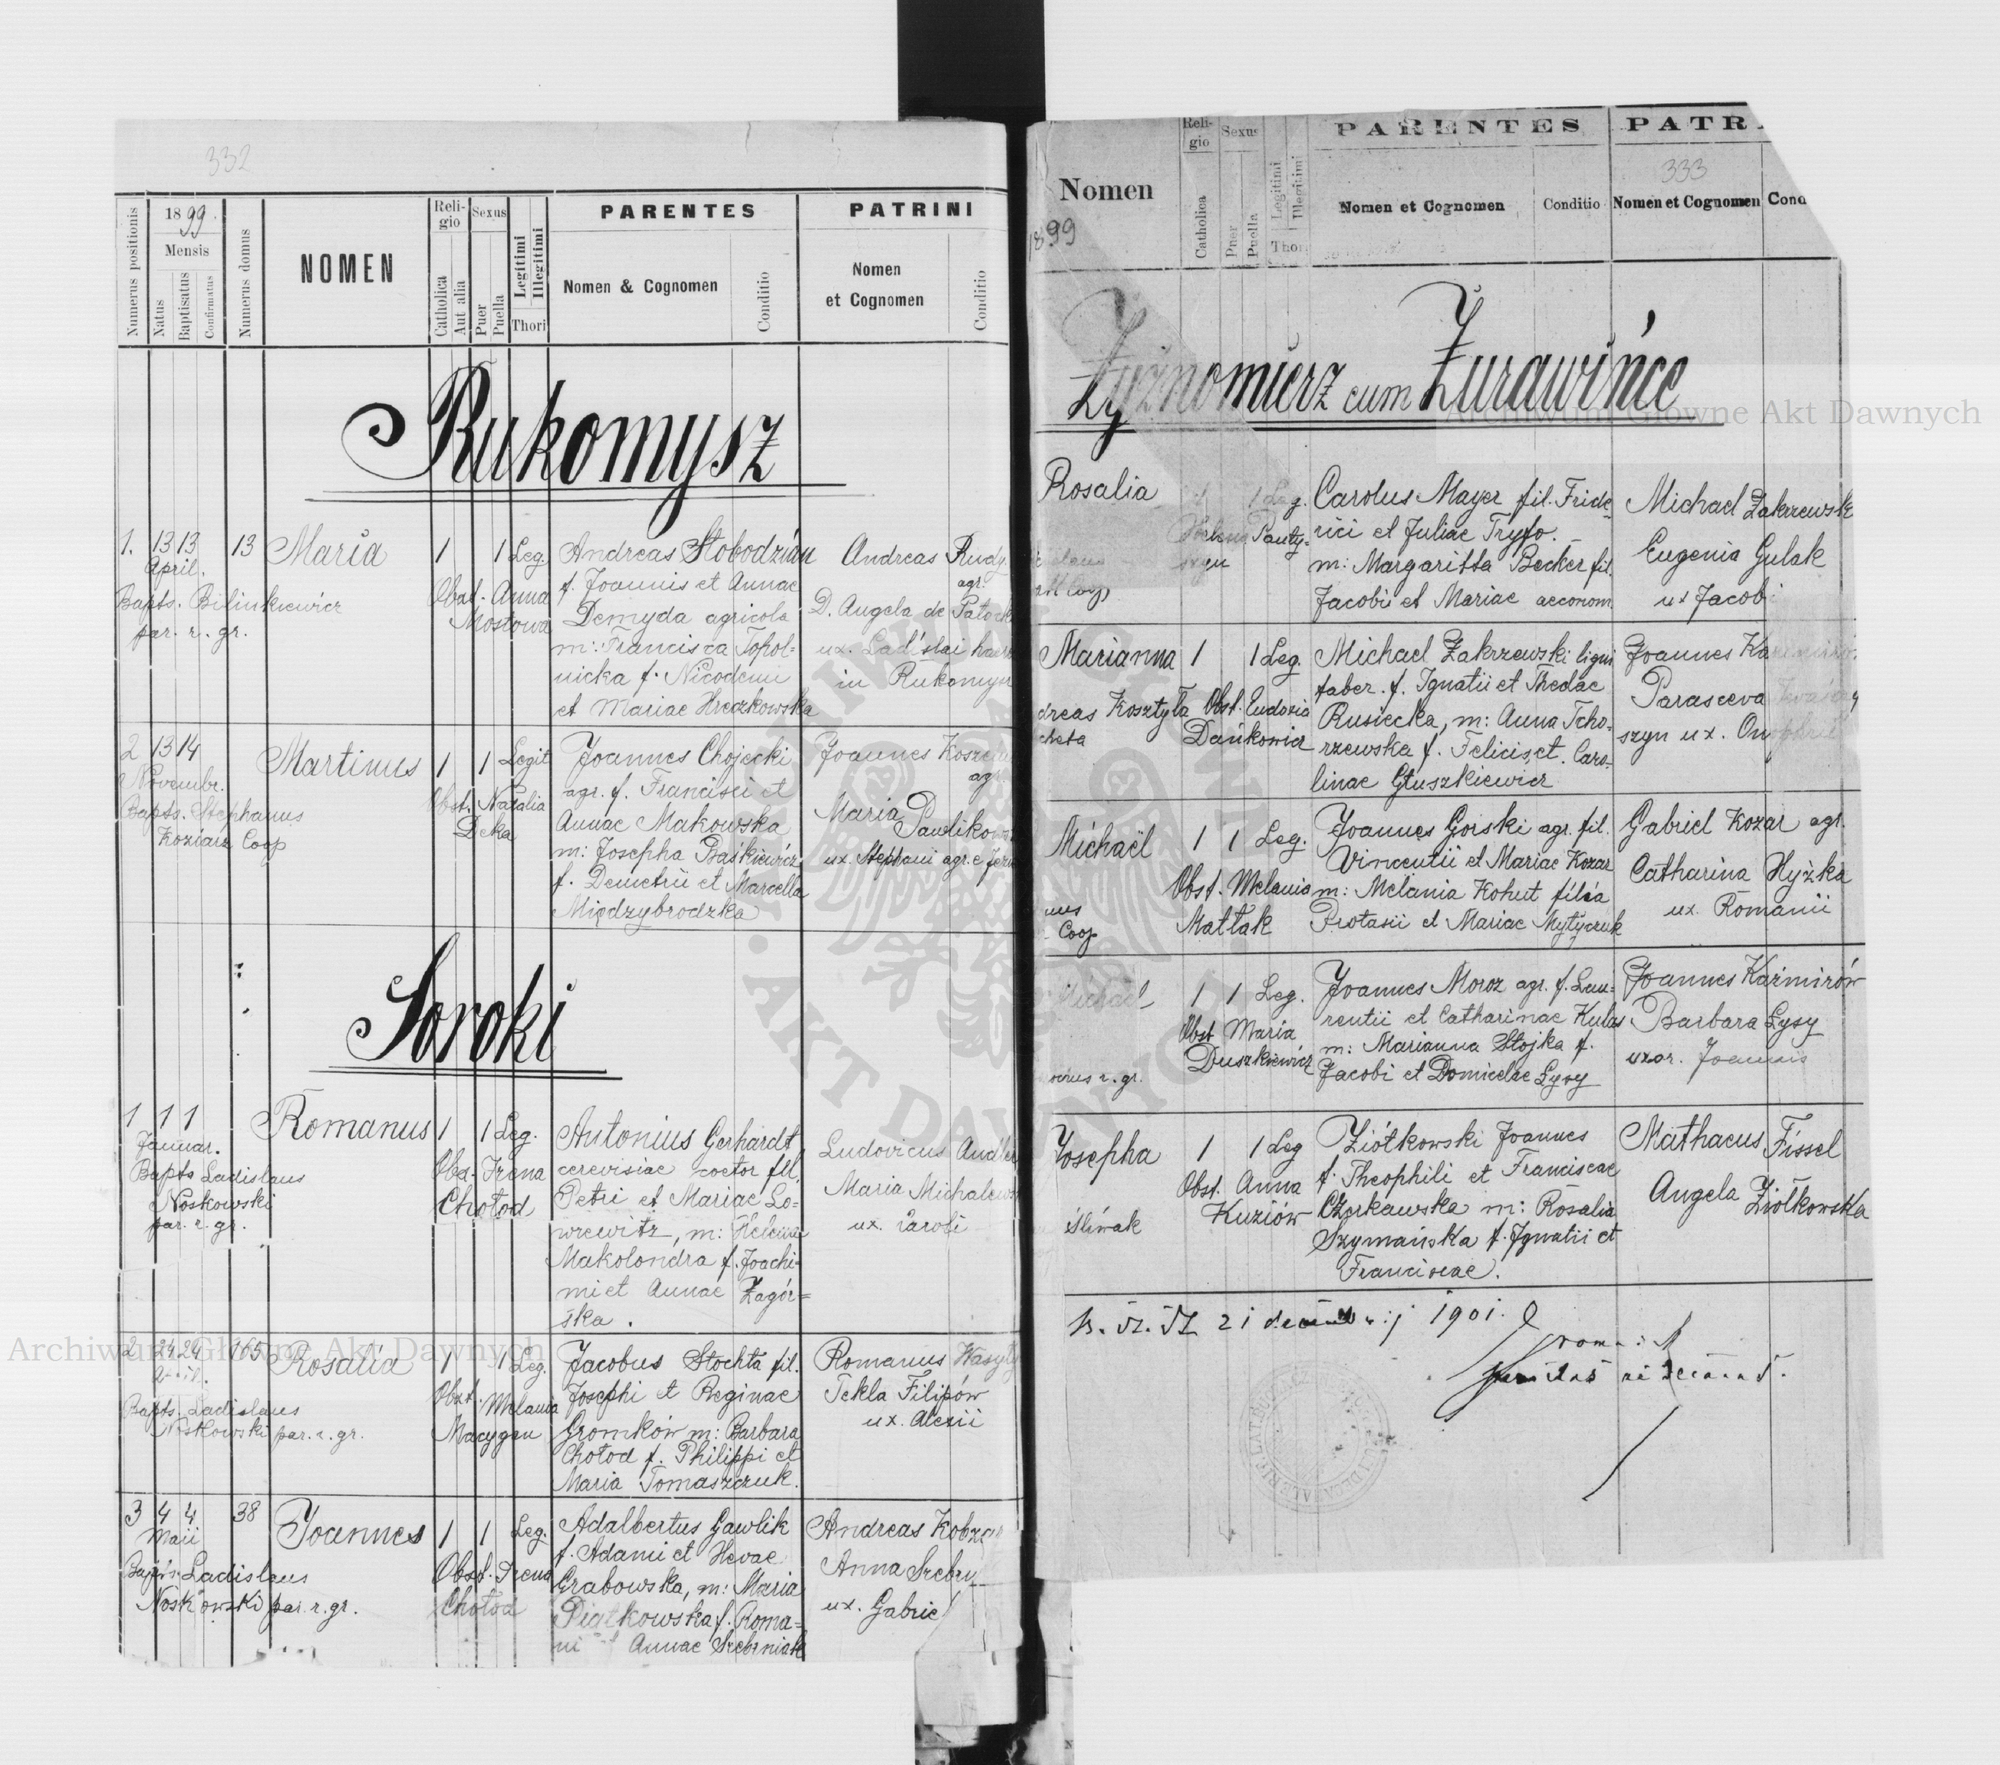 332
Numerus positionis
1899
Mensis
Natus
Baptisatus
Confirmatus
Numerus domus
NOMEN
Reli-
gio
Catholica
Aut alia
Sexus
Puer
Puella
Legitimi
Illegitimi
Thori
PARENTES
Nomen & Cognomen
Conditio
PATRINI
Nomen
et Cognomen
Conditio
Rukomysz
1. 13 13 13 Maria 1 1 Leg.
April.
Bapts. Bilinkiewicz
par. r. gr.
Obst. Anna
Mostowa
Andreas Słobodzian
f. Joannis et Annae
Demyda agricola
m: Francisca Topol-
nicka f. Nicodemi
et Mariae Hreczkowska
Andreas Rudy
agr.
D. Angela de
ux. Ladislai
in Rukomysz
2 13 14 Martinus 1 1 Legit
Novembr.
Bapts. Stephanus
Koziarz Coop
Obst. Natalia
Deka
Joannes Chojecki
agr. f. Francisci et
Annae Makowska
m: Josepha Baśkiewicz
f. Demetrii et Marcella
Międzybrodzka
Joannes
agr.
Maria
ux. Stephani agr.
Soroki
1 1 1 Romanus 1 1 Leg.
Januar.
Bapts Ladislaus
Noskowski
par. r. gr.
Obs. Irena
Chołod
Antonius Gerhardt
cerevisiae coctor fil.
Petri et Mariae Lo-
wrewitz, m: Helena
Makolondra f. Joachi-
mi et Annae Zagór-
ska.
Ludovicus
Maria
ux. Caroli
2 24 24 165 Rosalia 1 1 Leg.
Bapts. Ladislaus
Noskowski par. r. gr.
Obst. Melania
Macygan
Jacobus Stochta fil.
Josephi et Reginae
Gromków m: Barbara
Chołod f. Philippi et
Maria Tomaszczuk.
Romanus
Tekla Filipów
ux. Alexii
3 4 4 38 Joannes 1 1 Leg.
Maii
Bapts. Ladislaus
Noskowski par. r. gr.
Obst. Irena
Chołod
Adalbertus Gawlik
f. Adami et Hevae
Grabowska, m: Maria
Piątkowska f. Roma-
ni Annae Srebrniak
Andreas
Anna
ux.
Nomen
1899
Reli-
gio
Catholica
Sexus
Puer
Puella
Legitimi
Illegitimi
Thor
PARENTES
Nomen et Cognomen
Conditio
PATR
333
Nomen et Cognomen
Cond
Zyznomierz cum Żurawińce
Rosalia 1 1 Leg.
Carolus Mayer fil. Fride-
rici et Juliae Tryfo.
m: Margaritta Becker fil.
Jacobi et Mariae aeconom.
Michael
Eugenia Gulak
ux Jacobi
Marianna 1 1 Leg.
dreas Kosztyła
Obst. Eudoxia
Dańkowicz
Michael Zakrzewski ligni
faber. f. Ignatii et Thedae
Rusiecka, m: Anna Tcho-
rzewska f. Felicis, et. Caro-
linae Głuszkiewicz
Joannes
Parasceva
szyn ux.
Michaël 1 1 Leg.
Coop
Obst. Melania
Matłak
Joannes Gorski agr. fil.
Vincentii et Mariae Kozar
m: Melania Kohut filia
Protasii et Mariae Mytyczuk
Gabriel Kozar agr.
Catharina Hyżka
ux. Romanii
Michael 1 1 Leg.
r. gr.
Obst Maria
Duszkiewicz
Joannes Moroz agr. f. Lau-
rentii et Catharinae Kulas
m: Marianna Stojka f.
Jacobi et Domicelae Lysy
Joannes Kazimirów
Barbara Lysy
uxor. Joannis
Josepha 1 1 Leg
śliwak
Obst. Anna
Kuziów
Ziółkowski Joannes
f. Theophili et Franciscae
Czorkawska m: Rosalia
Szymańska f. Ignatii et
Franciscae.
Mathaeus Fissel
Angela Ziółkowska
21 1901.
Archiwum Główne Akt Dawnych
Archiwum Główne Akt Dawnych